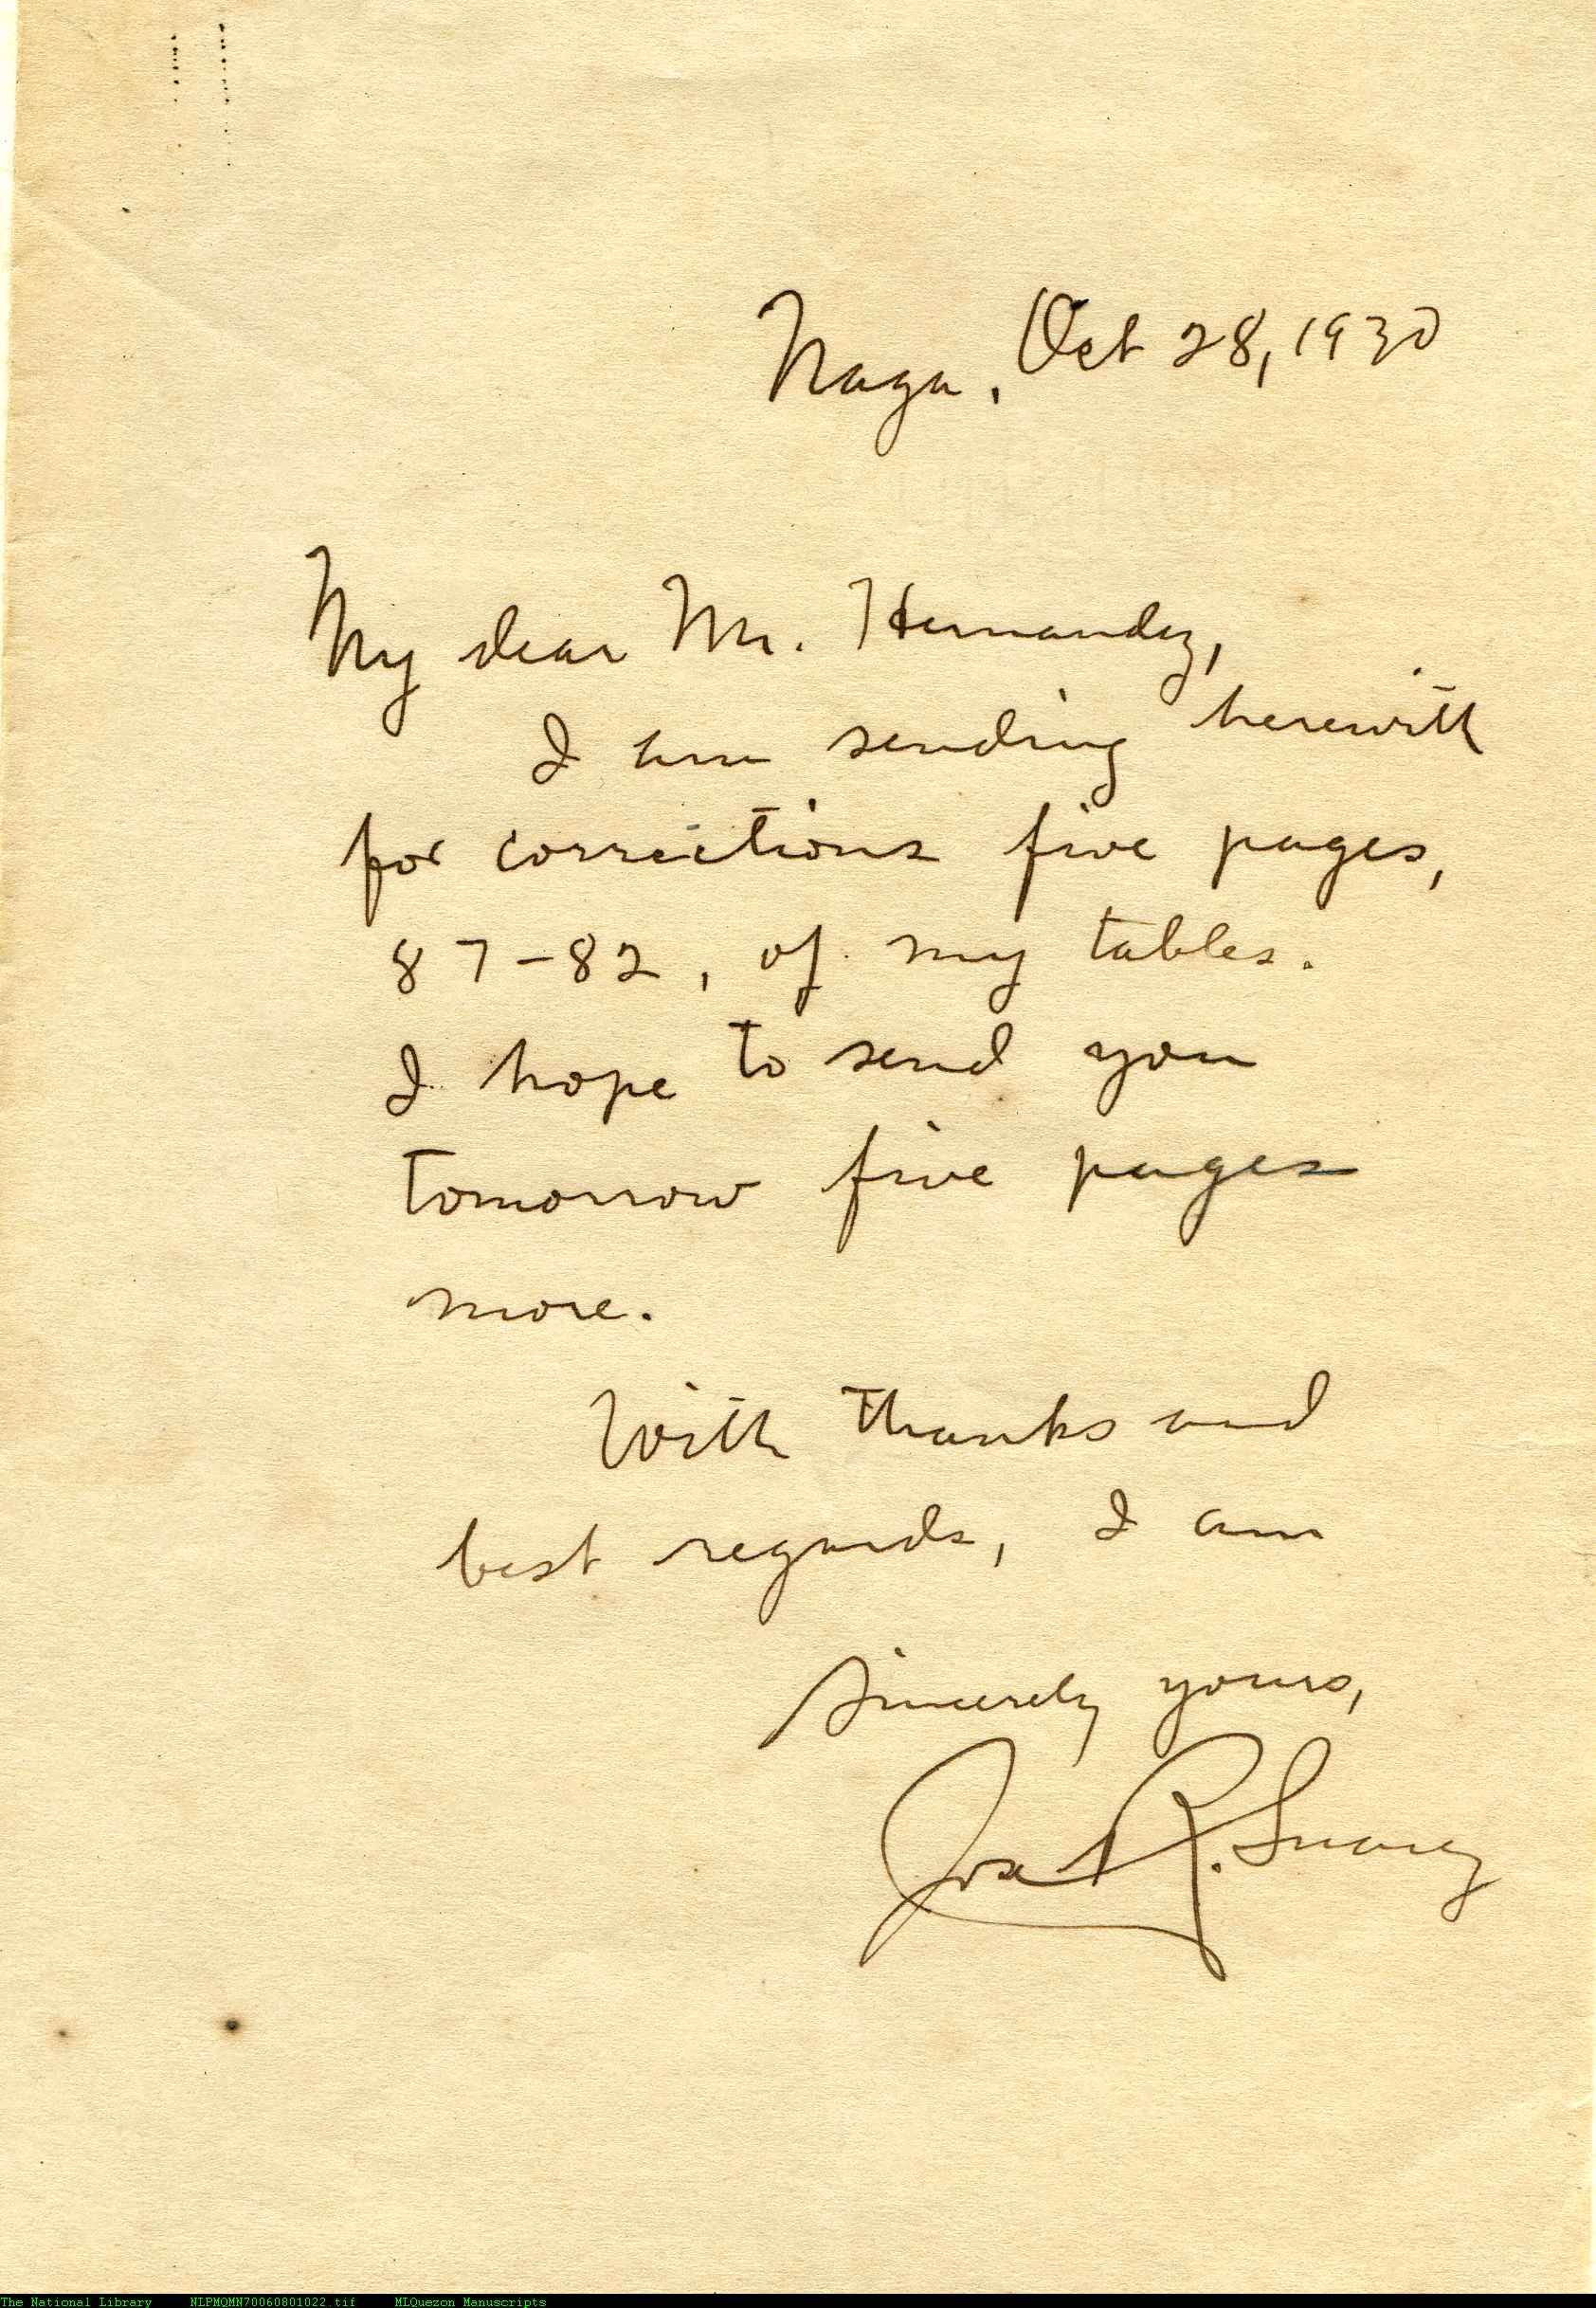 Naga, Oct 28, 1930
My dear Mr. Hernandez,
I am sending herewith
for corrections five pages,
87-82, of my tables.
I hope to send you
tomorrow five pages
more.
With thanks and
best regards, I am
Sincerely yours,
Jose R. Suarez
The National Library NLPMQMN70060801022.tif MLQuezon Manuscripts